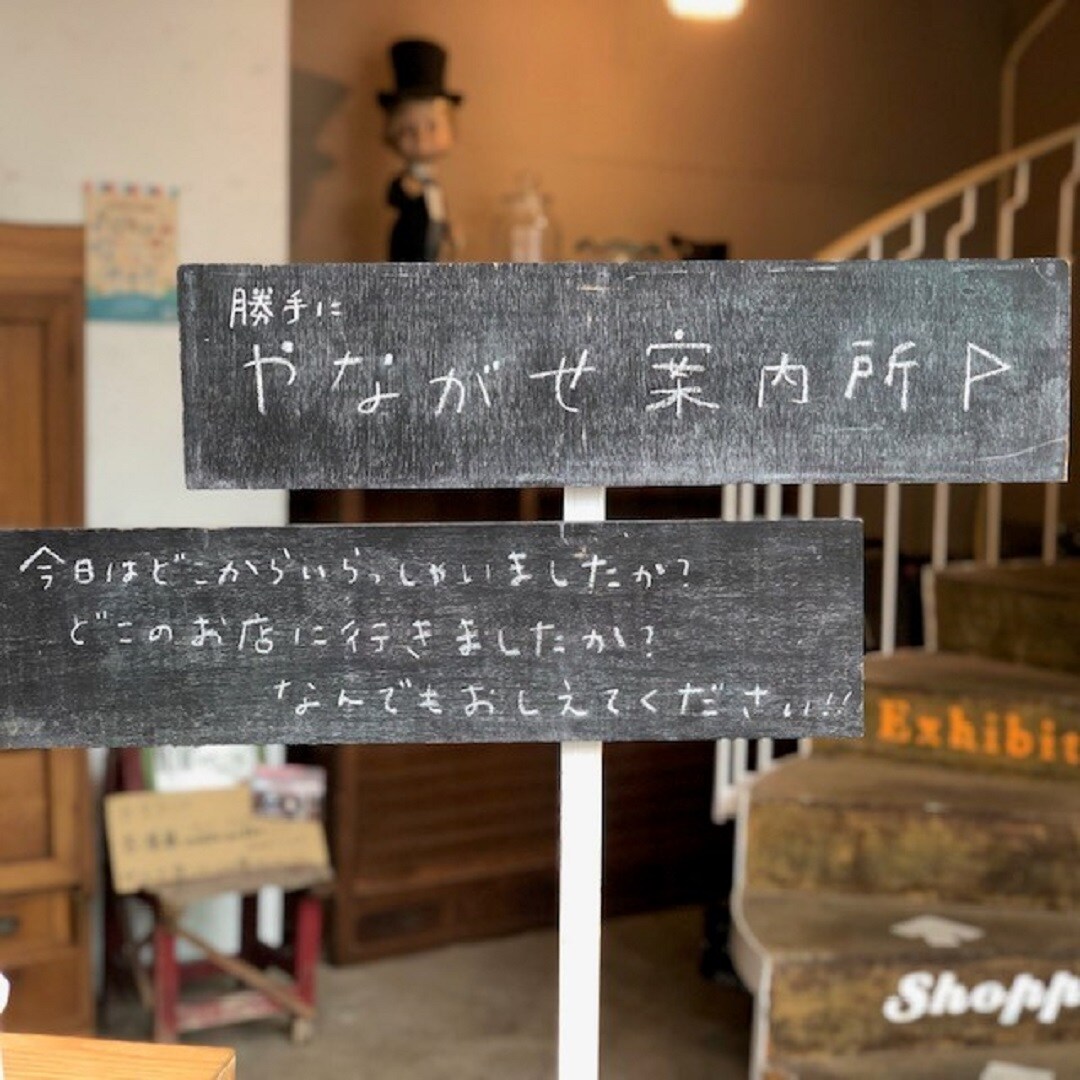 勝手に
やながせ案内所
今日はどこからいらっしゃいましたか?
どこのお店に行きましたか?
なんでもおしえてください!!
Exhibit
Shopp